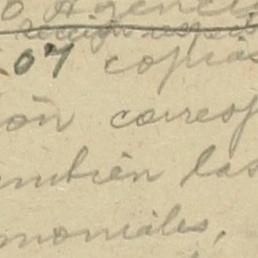 o Agencia
07 copias
ón corresp
ambién las
moniales,